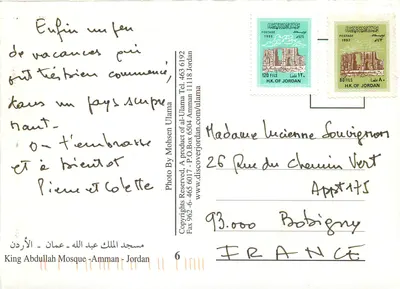 Enfin un peu
de vacances qui
ont très bien commencé,
dans un pays surpre
nant.
On t'embrasse
et à bientôt
Pierre et Colette
مسجد الملك عبد الله - عمان - الأردن
King Abdullah Mosque -Amman - Jordan
6
Photo By Mohsen Ulama
Copyrights Reserved, A product of al-Ulama Tel. 463 6192
Fax 962 -6 465 6017 - P.O.Box 6504 Amman 11118 Jordan
www.discoverjordan.com/ulama
POSTAGE
1993
120 FILS
H.K. OF JORDAN
POSTAGE
1993
80 FILS
H.K. OF JORDAN
Madame Lucienne Souvignon
26 Rue du Chemin Vert
Appt 175
93.000 Bobigny
FRANCE